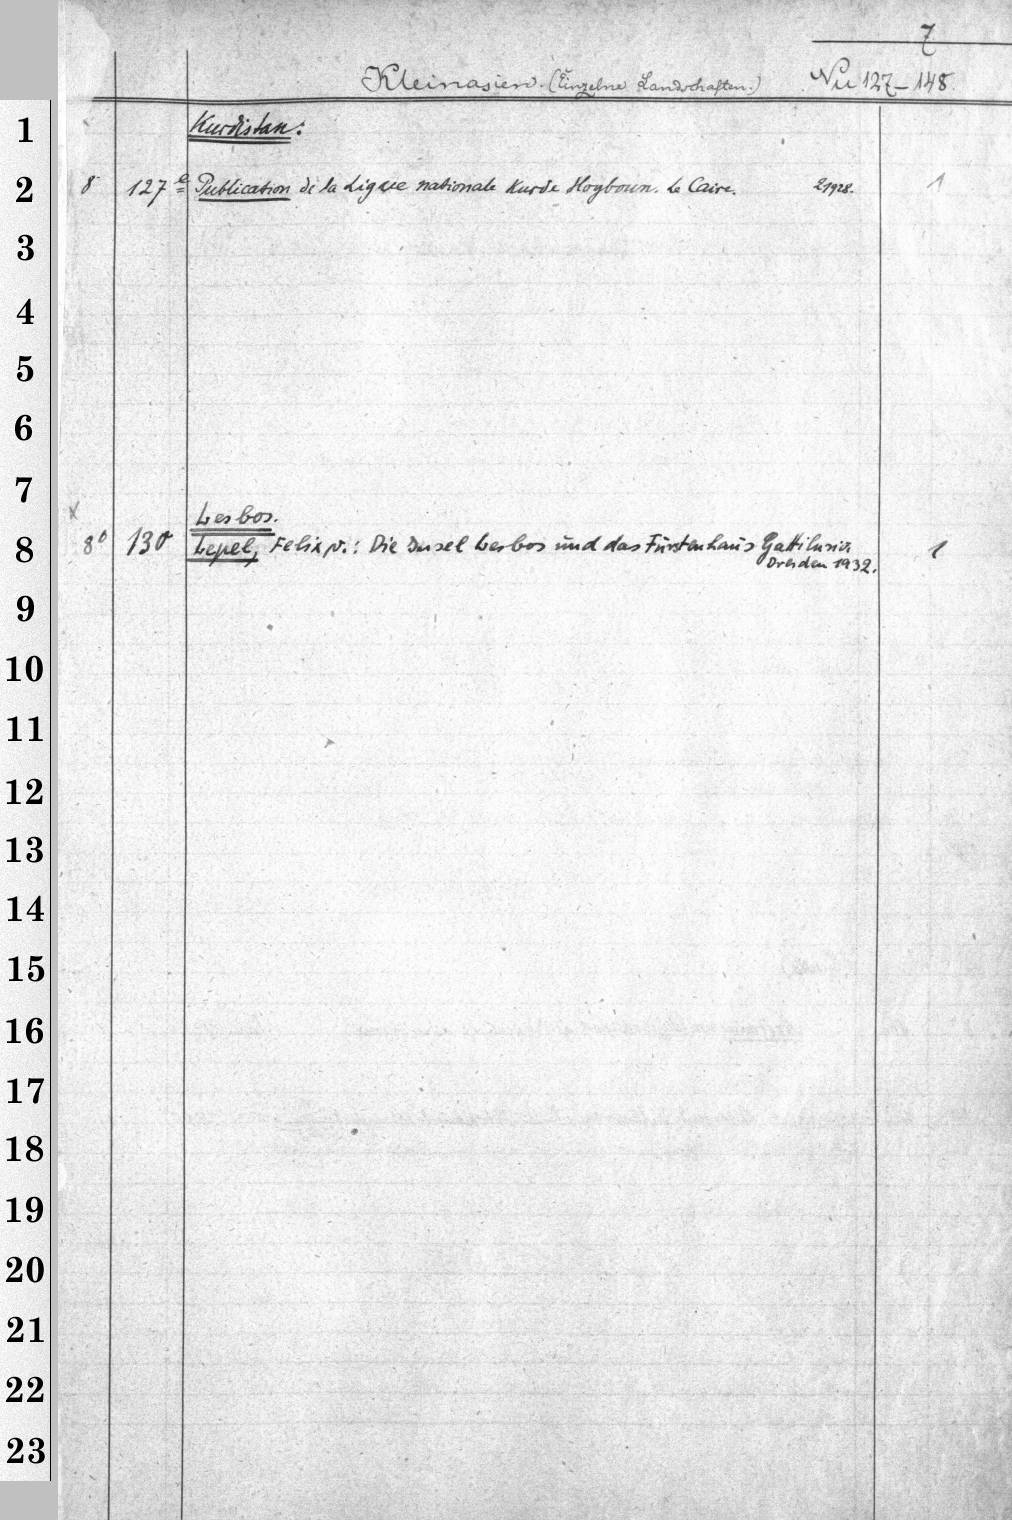 7
Kleinasien. (Einzelne Landschaften.) Nu 127–148.
1 Kurdistan:
2 8° 127 e Publication de la Ligue nationale Kurde Hoyboun. Le Caire. 2 1928. 1
3
4
5
6
7
x Lesbos.
8 8° 130 Lepel, Felix v.: Die Insel Lesbos und das Fürstenhaus Gattilusio. 1
Dresden 1932.
9
10
11
12
13
14
15
16
17
18
19
20
21
22
23